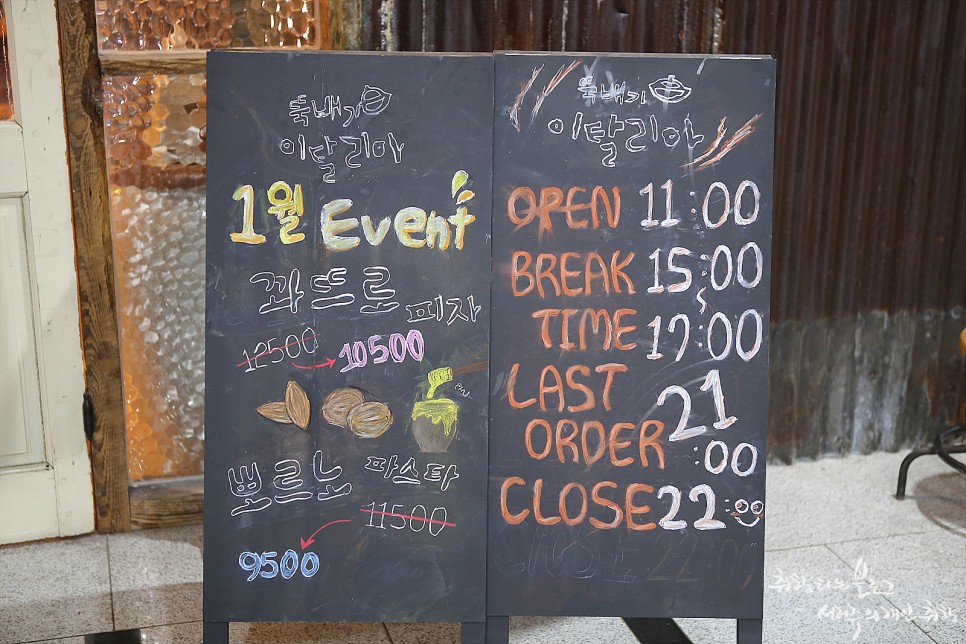 뚝배기
이딸리아
1월 Event
꽈뜨로 피자
12500 10500
뽀르노 파스타
11500
9500
뚝배기
이딸리아
OPEN 11:00
BREAK 15:00
~
TIME 17:00
LAST 21
ORDER :00
CLOSE 22:00